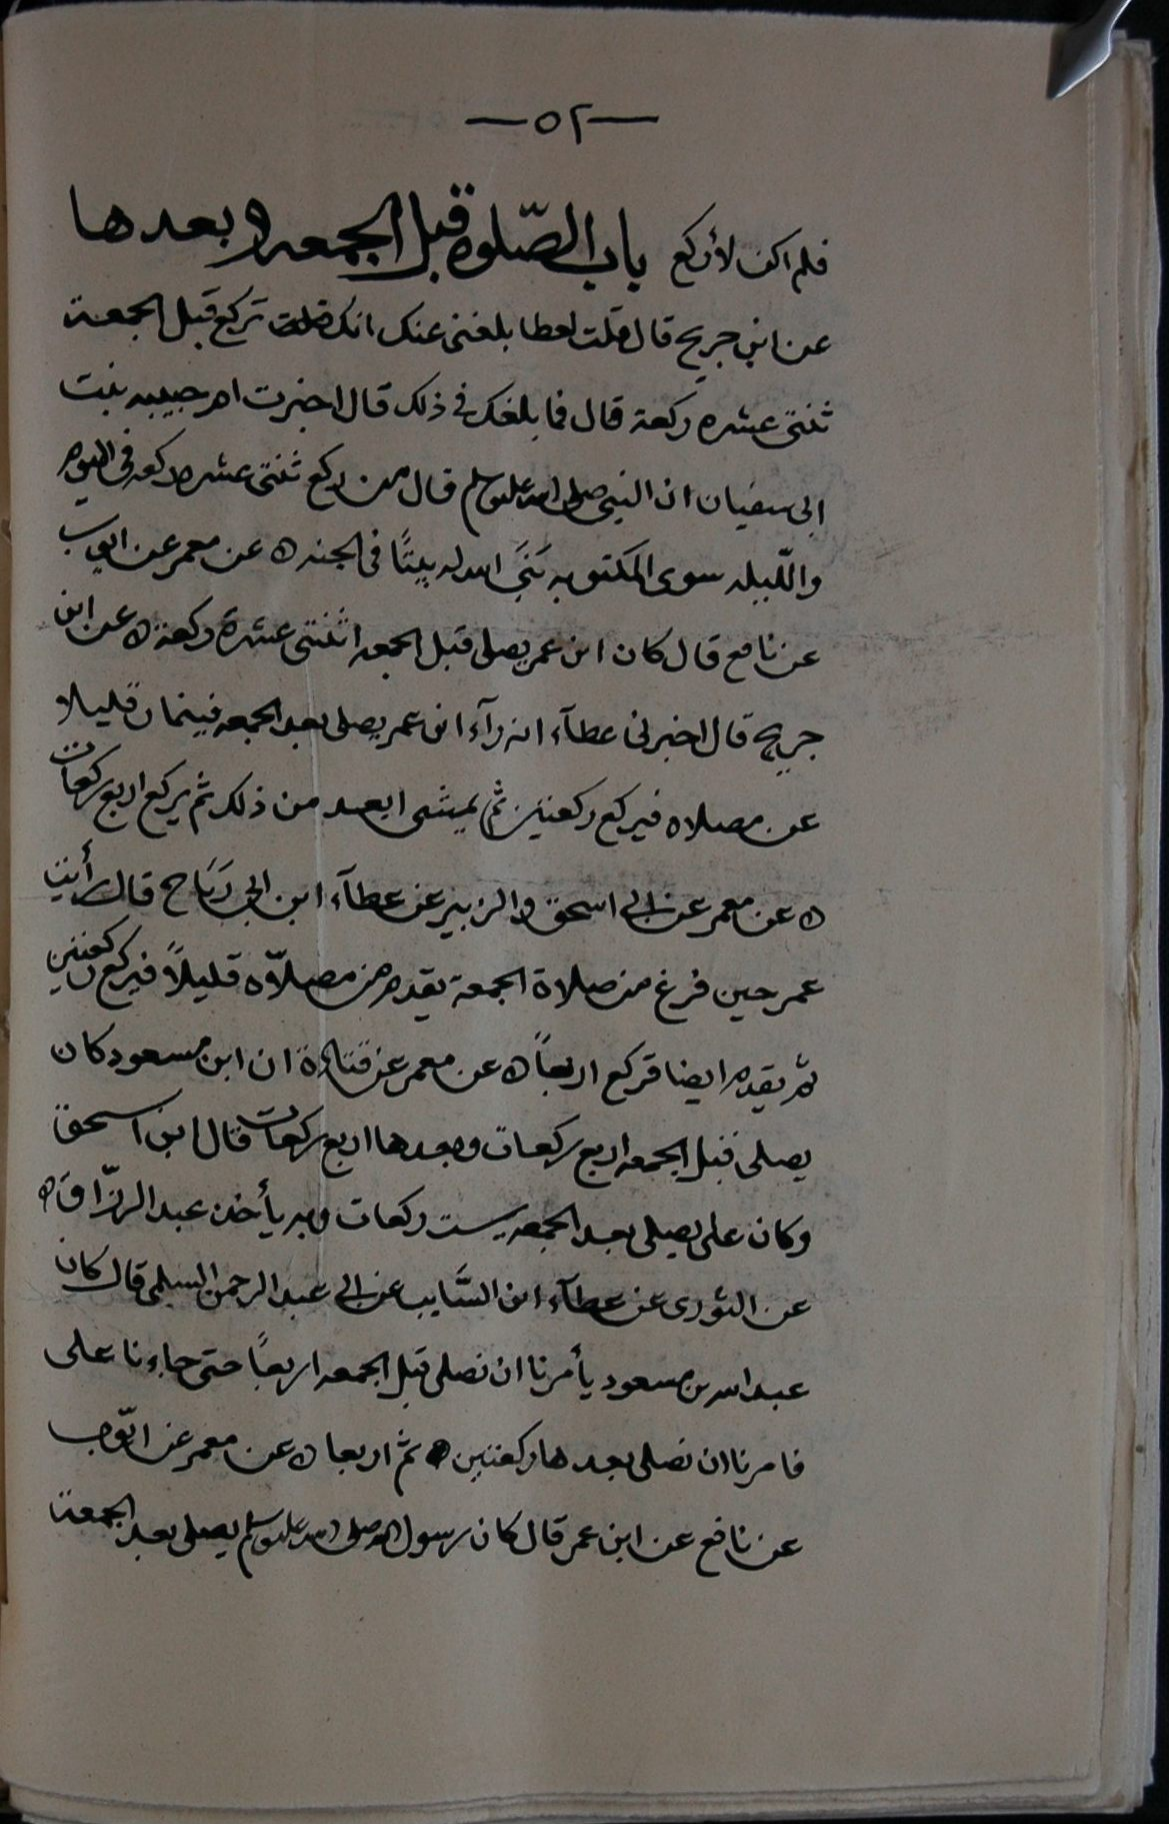 —٥٢—
فلم اكن لأركع باب الصّلوة قبل الجمعه و بعدها
عن ابن جريج قال قلت لعطا بلغنى عنك انك تركع قبل الجمعة
ثنتى عشره ركعة قال فما بلغك فى ذلك قال اخبرت ام حبيبه بنت
ابى سفيان ان النبى صلى الله عليه وسلم قال من ركع ثنتى عشره ركعه فى اليوم
واللّيله سوى المكتوبه بَنَى الله له بيتًا فى الجنه ه عن معمر عن ايوب
عن نافع قال كان ابن عمر يصلى قبل الجمعه اثنتى عشرة ركعة ه عن ابن
جريج قال اخبرنى عطآء انه رآء ابن عمر يصلى بعد الجمعه فينماز قليلا
عن مصلاه فيركع ركعتين ثم يمشى ابعد من ذلك ثم يركع اربع ركعات
ه عن معمر عن ابى اسحق والزبير عن عطآء ابن ابى رَبَاح قال رأيت
عمر حين فرغ من صلاة الجمعة يقدم من مصلاّه قليلاً فيركع ركعتين
ثم يقدم ايضا قركع اربعاً ه عن معمر عن قتادة ان ابن مسعود كان
يصلى قبل الجمعه اربع ركعات وبعدها اربع ركعات قال ابن اسحق
وكان على يصلى بعد الجمعه ست ركعات وبه يأخذ عبد الرزّاق ه
عن الثورى عن عطآء ابن السَّايب عن ابى عبد الرحمن السلمى قال كان
عبد الله بن مسعود يأمرنا ان نصلى قبل الجمعه اربعاً حتى جاءنا على
فامرنا ان نصلى بعدها ركعتين ثم اربعا ه عن معمر عن ايّوب
عن نافع عن ابن عمر قال كان رسول الله صلى الله عليه وسلم يصلى بعد الجمعة